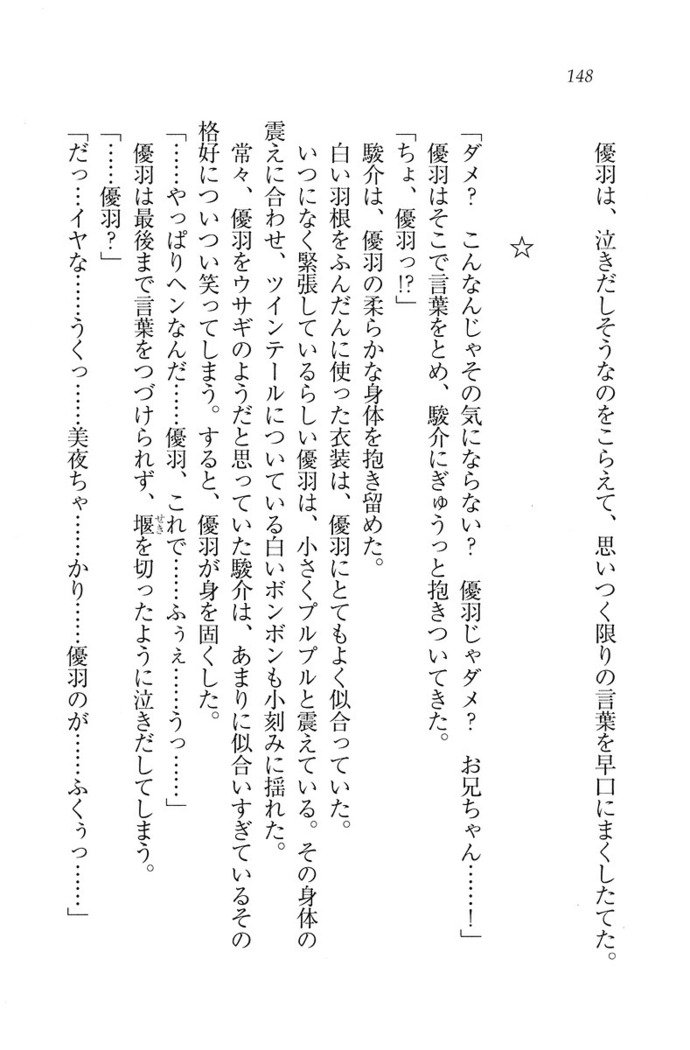 148
優羽は、泣きだしそうなのをこらえて、思いつく限りの言葉を早口にまくしたてた。
☆
「ダメ？　こんなんじゃその気にならない？　優羽じゃダメ？　お兄ちゃん……！」
優羽はそこで言葉をとめ、駿介にぎゅうっと抱きついてきた。
「ちょ、優羽っ!?」
駿介は、優羽の柔らかな身体を抱き留めた。
白い羽根をふんだんに使った衣装は、優羽にとてもよく似合っていた。
いつになく緊張しているらしい優羽は、小さくプルプルと震えている。その身体の
震えに合わせ、ツインテールについている白いボンボンも小刻みに揺れた。
常々、優羽をウサギのようだと思っていた駿介は、あまりに似合いすぎているその
格好についつい笑ってしまう。すると、優羽が身を固くした。
「……やっぱりヘンなんだ……優羽、これで……ふぅぇ……うっ……」
優羽は最後まで言葉をつづけられず、堰を切ったように泣きだしてしまう。
せき
「……優羽？」
「だっ…イヤな……うくっ……美夜ちゃ……かり……優羽のが……ふくぅっ……」